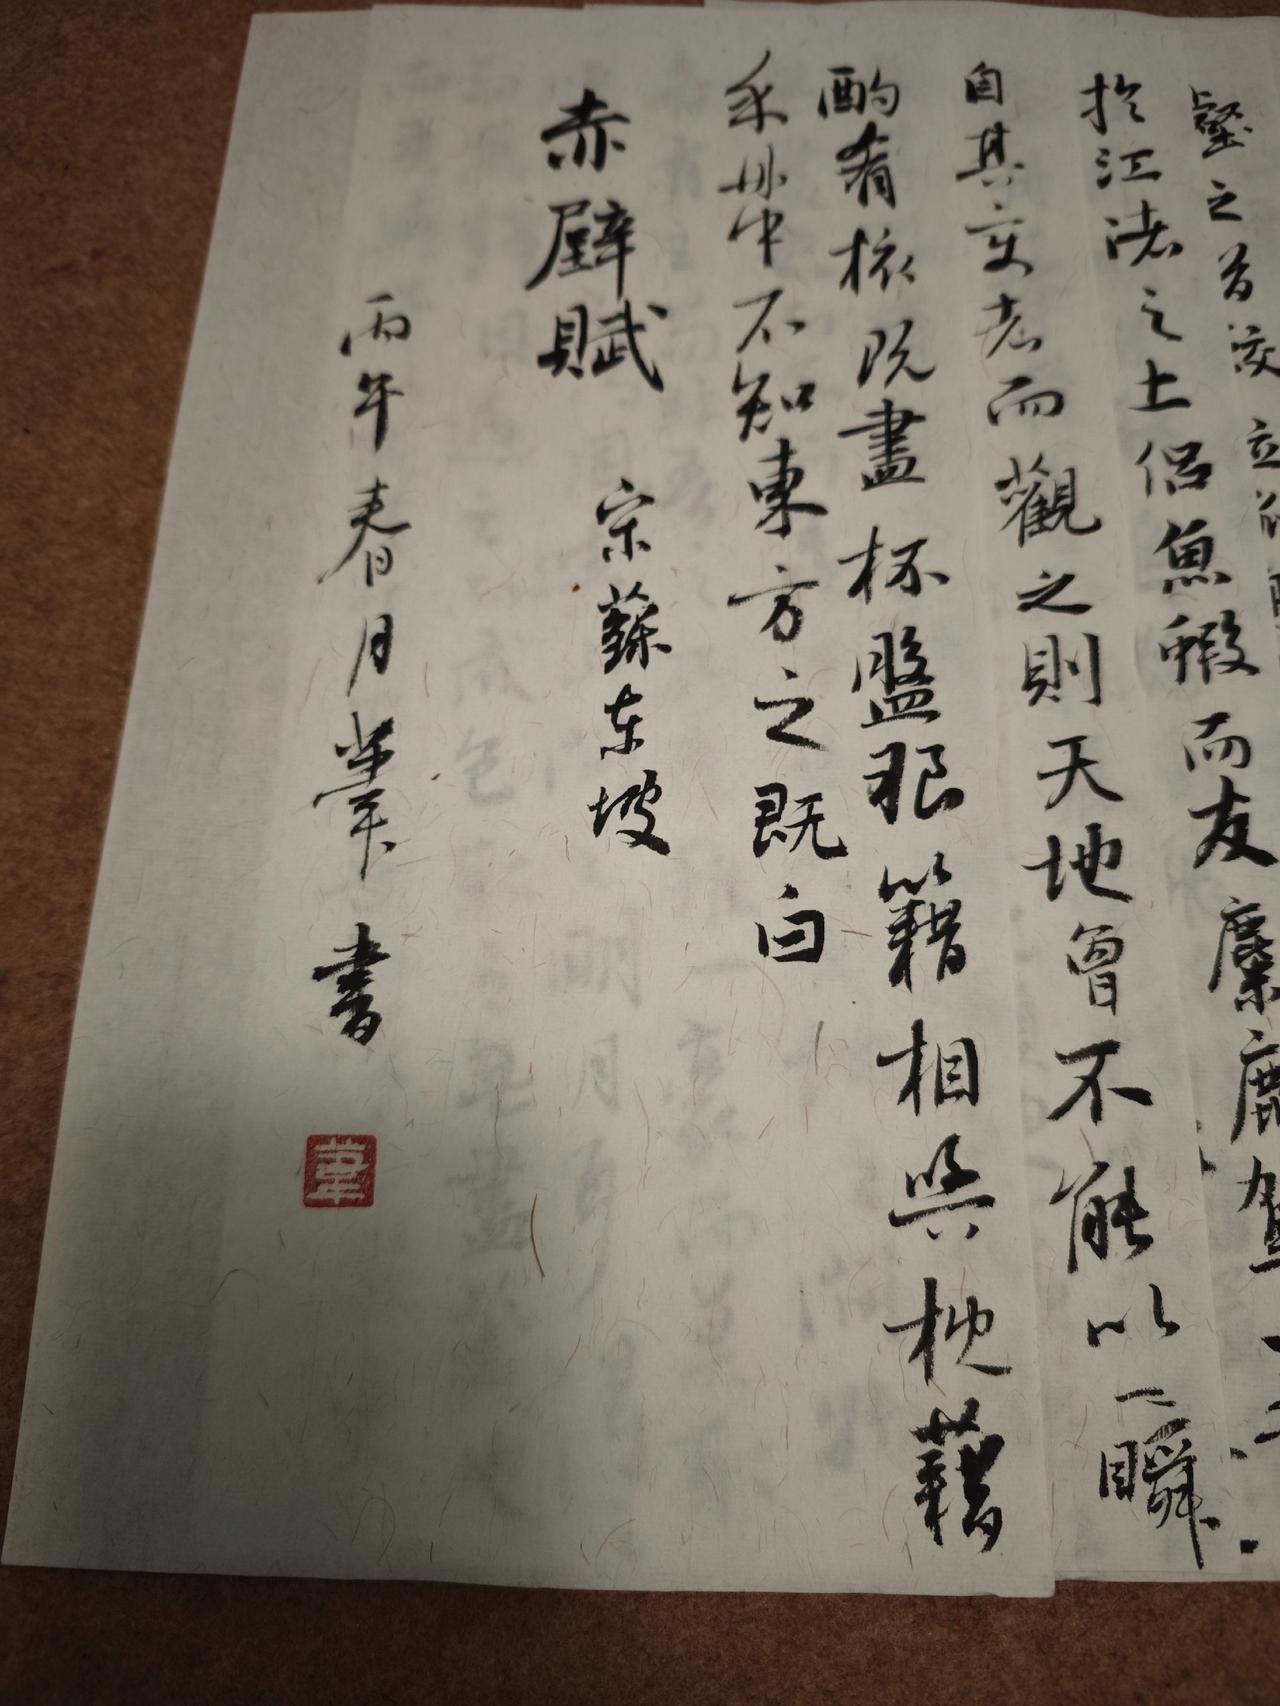 壑之
於江渚之上侣魚蝦而友麋鹿駕一
自其变者而觀之則天地曾不能以一瞬
酌肴核既盡杯盤狼籍相與枕藉
乎舟中不知東方之既白
赤壁賦
宋蘇东坡
丙午春月葦書
葦